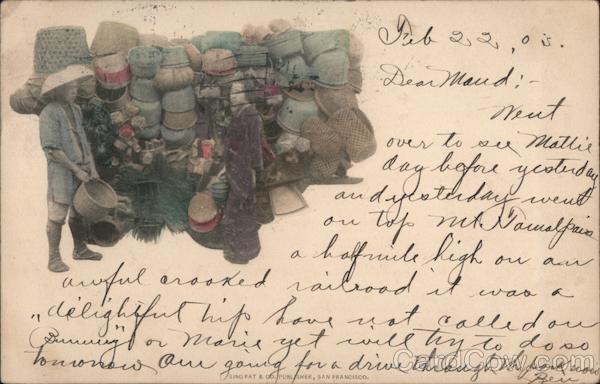 Feb 22, 03.
Dear Maud:-
Went
over to see Mattie
day before yesterday
and yesterday went
on top Mt Tamalpais
a half mile high on an
awful crooked railroad it was a
delightful trip have not called on
"Bunnie" or Marie yet will try to do so
tomorrow Am going for a drive through now
Ben
SING FAT & CO. PUBLISHER, SAN FRANCISCO.
CardCow.com